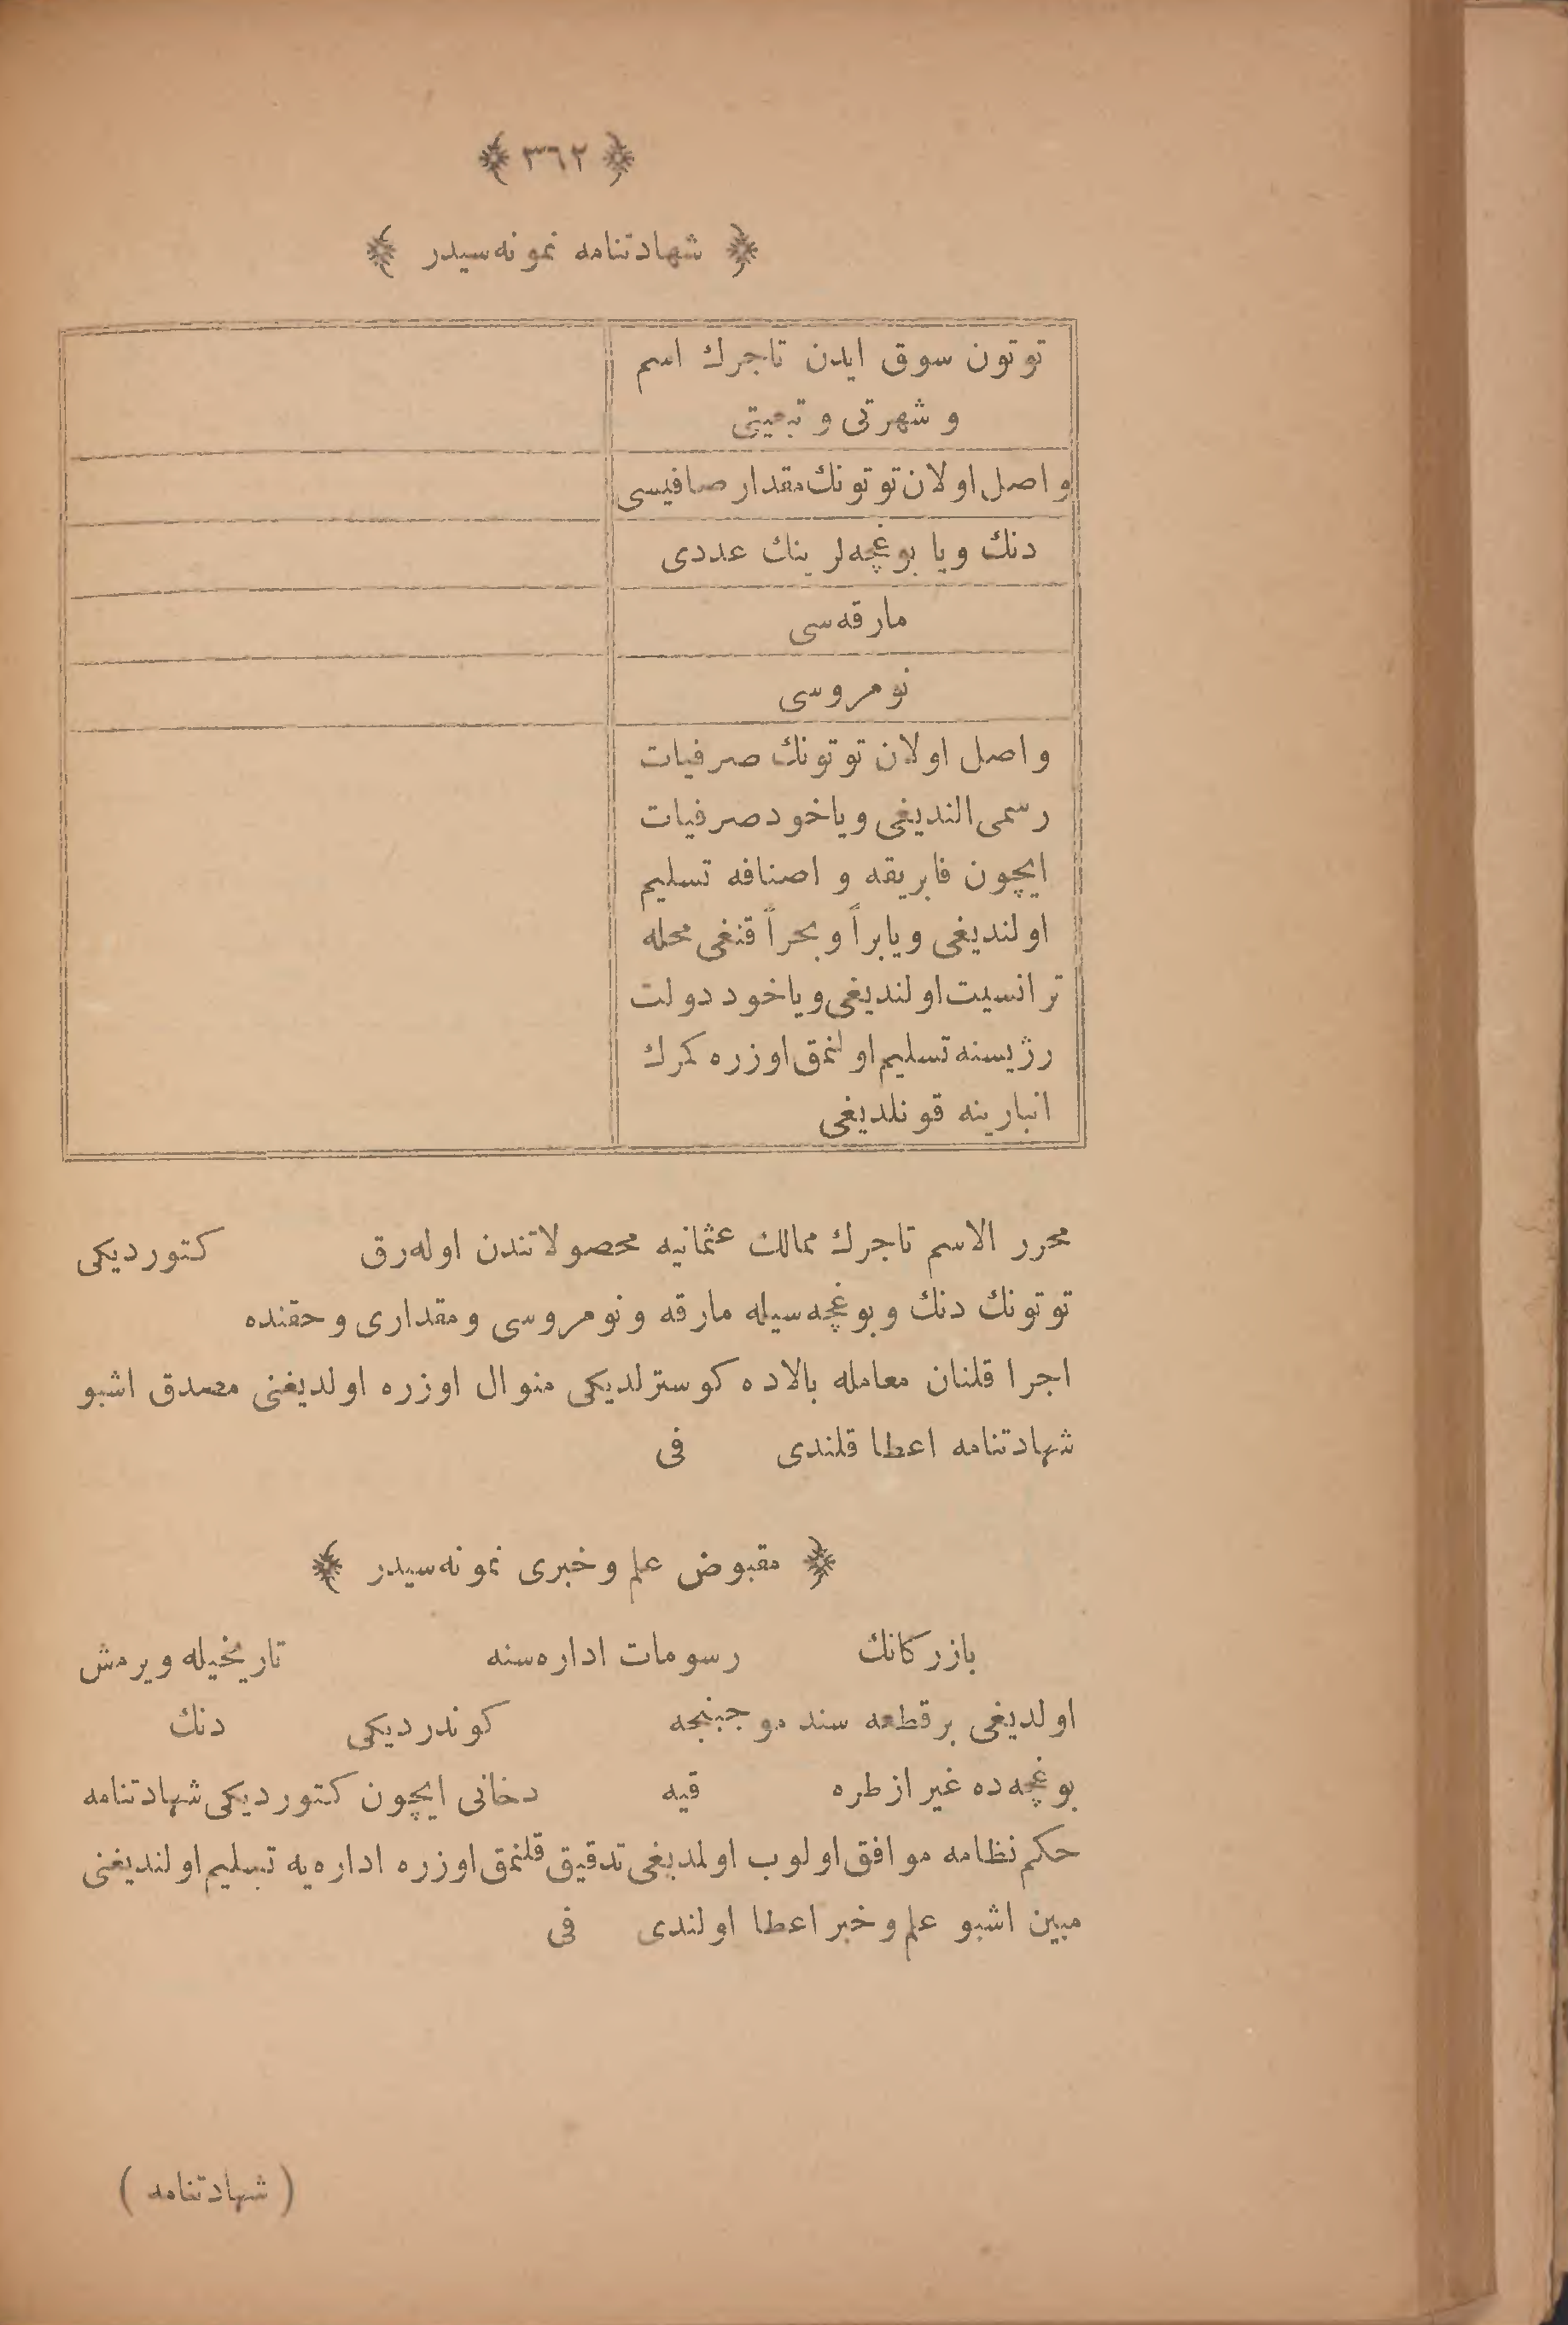 ﴿ ٣٦٢ ﴾
﴿ شهادتنامه نمونه‌سیدر ﴾
توتون سوق ایدن تاجرك اسم
و شهرتی و تبعیتی
واصل اولان توتونك مقدار صافیسی
دنك ویا بوغچه‌لرینك عددی
مارقه‌سی
نومروسی
واصل اولان توتونك صرفیات
رسمی الندیغی ویاخود صرفیات
ایچون فابریقه و اصنافه تسلیم
اولندیغی ویا براً وبحراً قنغی محله
ترانسیت اولندیغی ویاخود دولت
رژیسنه تسلیم اولنمق اوزره كمرك
انبارینه قونلدیغی
محرر الاسم تاجرك ممالك عثمانیه محصولاتندن اوله‌رق كتوردیكی
توتونك دنك وبوغچه‌سیله مارقه ونومروسی ومقداری وحقنده
اجرا قلنان معامله بالاده كوسترلدیكی منوال اوزره اولدیغنی مصدق اشبو
شهادتنامه اعطا قلندی فی
﴿ مقبوض علم وخبری نمونه‌سیدر ﴾
بازركانك رسومات اداره‌سنه تاریخیله ویرمش
اولدیغی برقطعه سند موجبنجه كوندردیكی دنك
بوغچه‌ده غیر ازطره قیه دخانی ایچون كتوردیكی شهادتنامه
حكم نظامه موافق اولوب اولمدیغی تدقیق قلنمق اوزره اداره‌یه تسلیم اولندیغنی
مبین اشبو علم وخبر اعطا اولندی فی
( شهادتنامه )